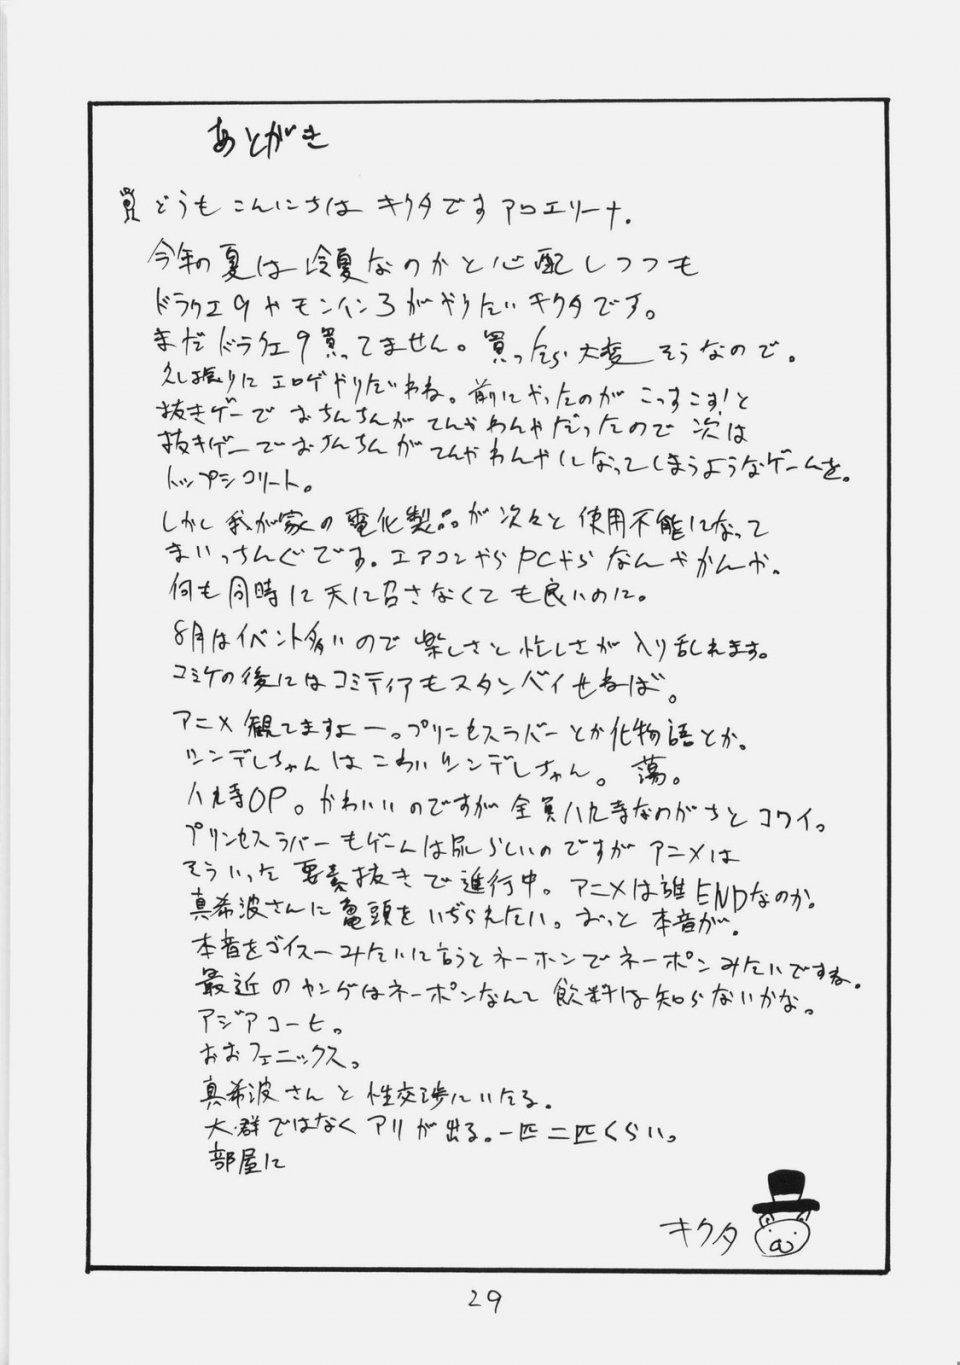 あとがき
どうもこんにちは キクタです アロエリーナ.
今年の夏は冷夏なのかと心配しつつも
ドラクエ9やモンハン3がやりたいキクタです。
まだドラクエ9買ってません。買ったら大変そうなので。
久し振りにエロゲやりたいわね。前にやったのがこっすこす!と
抜きゲーでおちんちんがてんやわんやだったので次は
抜きゲーでおちんちんがてんやわんやになってしまうようなゲームを。
トップシコリート。
しかし我が家の電化製品が次々と使用不能になって
まいっちんぐです。エアコンやらPCやらなんやかんや、
何も同時に天に召さなくても良いのに。
8月はイベント多いので楽しさと忙しさが入り乱れます。
コミケの後にはコミティアもスタンバイせねば。
アニメ観てますよー。プリンセスラバーとか化物語とか。
ツンデレちゃんはこわいツンデレちゃん。蕩。
八九寺OP。かわいいのですが全員八九寺なのがちとコワイ。
プリンセスラバーもゲームは尿らしいのですがアニメは
そういった要素抜きで進行中。アニメは誰ENDなのか。
真希波さんに亀頭をいぢられたい。おっと本音が。
本音をゴイスーみたいに言うとネーホンでネーポンみたいですね。
最近のヤングはネーポンなんて飲料は知らないかな。
アジアコーヒ。
おおフェニックス。
真希波さんと性交渉にいたる。
大群ではなくアリが出る。一匹二匹くらい。
部屋に
キクタ
29